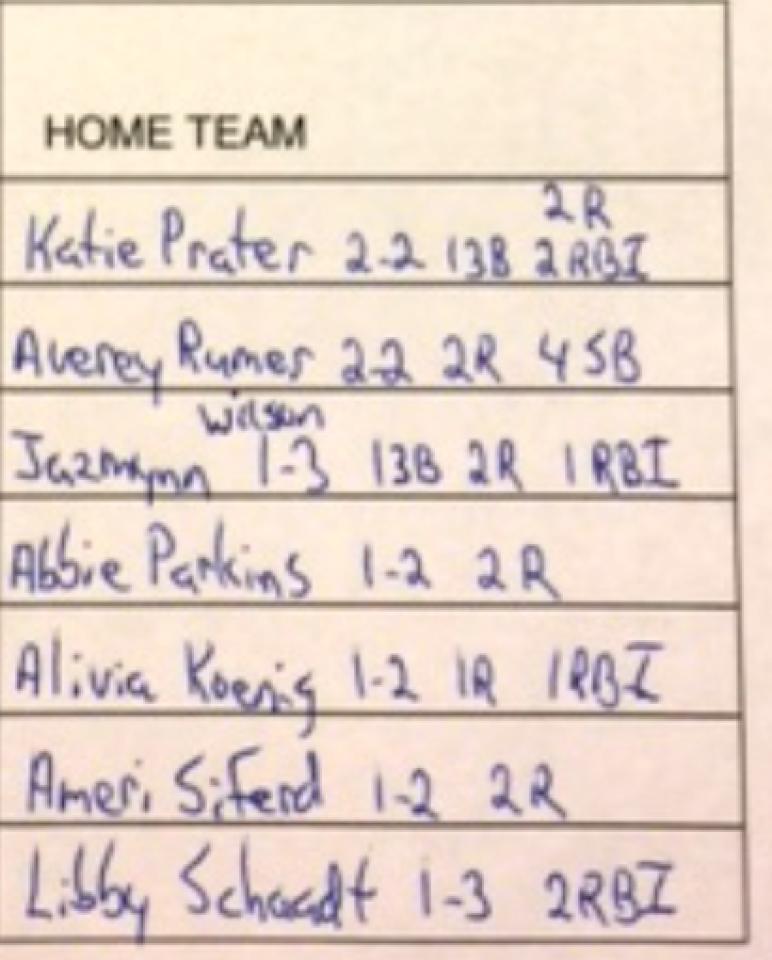 HOME TEAM
2R
Katie Prater 2-2 13B 2RBI
Averey Rumer 2-2 2R 4 SB
Wilson
Jazmynn 1-3 13B 2R 1 RBI
Abbie Parkins 1-2 2R
Alivia Koenig 1-2 1R 1RBI
Ameri Siferd 1-2 2R
Libby Schaadt 1-3 2RBI